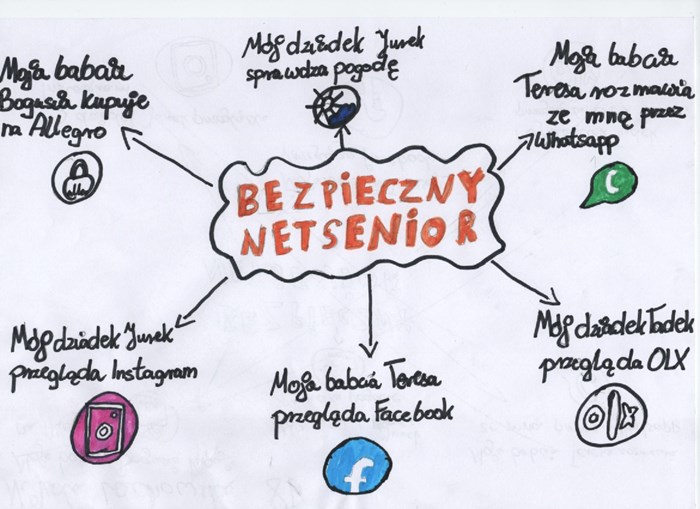 Moja babcia
Bogusia kupuje
na Allegro
Mój dziadek Jurek
sprawdza pogodę
Moja babcia
Teresa rozmawia
ze mną przez
Whatsapp
BEZPIECZNY
NETSENIOR
Mój dziadek Jurek
przegląda Instagram
Moja babcia Teresa
przegląda Facebook
Mój dziadek Tadek
przegląda OLX